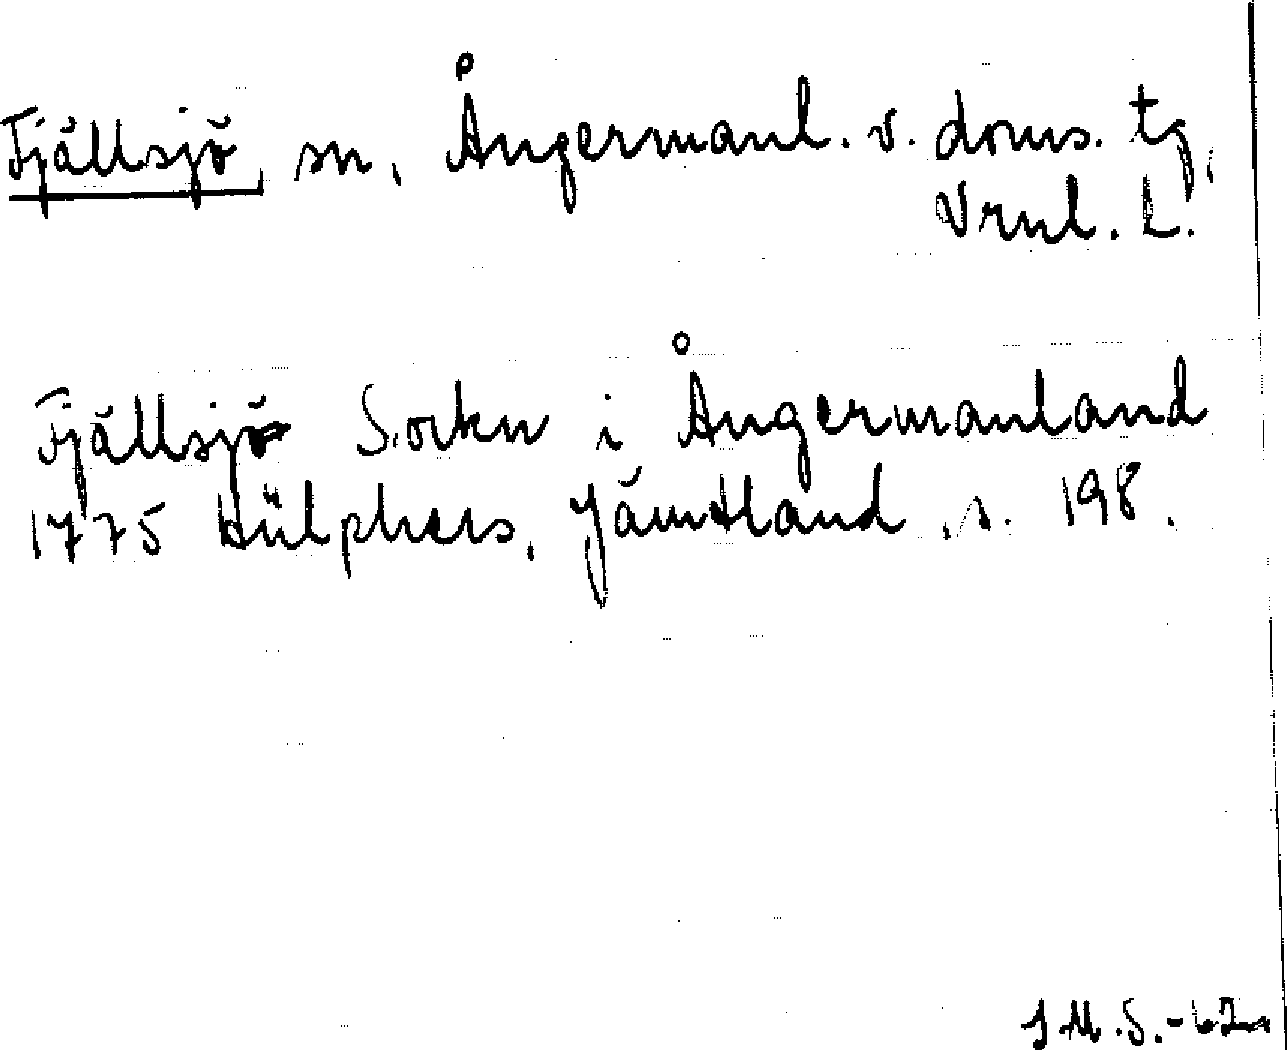 Fjällsjö, sn, Ångermanl. v. doms. tg,
Vrnl. L.
Fjällsjö Sorkn i Ångermanland
1775 Hülphers, Jämtland, s. 198.
J M. S. -62